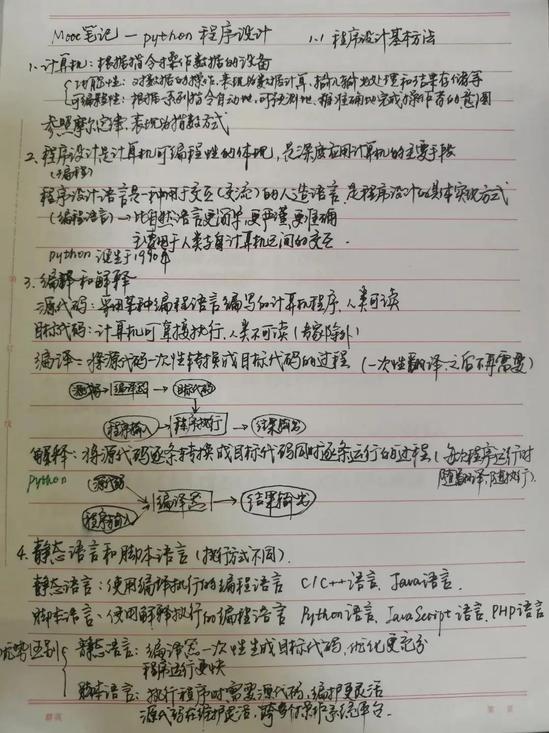 Mooc笔记 — python 程序设计 1.1 程序设计基本方法
1. 计算机：根据指令操作数据的设备
功能性：对数据的操作，表现为数据计算，输入输出处理和结果存储等
可编程性：根据一系列指令自动地，可预测地，准确地完成操作者的意图
参照摩尔定律，表现为指数方式
2. 程序设计是计算机可编程性的体现，是深度应用计算机的主要手段
(编程)
程序设计语言是一种用于交互(交流)的人造语言，是程序设计的具体实现方式
(编程语言) → 比自然语言更简单，更严谨，更准确
主要用于人类与计算机之间的交互.
python 诞生于1990年
3. 编译和解释
源代码：采用某种编程语言编写的计算机程序，人类可读
目标代码：计算机可直接执行，人类不可读 (专家除外)
编译：将源代码一次性转换成目标代码的过程 (一次性翻译，之后不再需要)
源代码 → 编译器 → 目标代码
程序输入 → 程序执行 → 结果输出
解释：将源代码逐条转换成目标代码同时逐条运行的过程 (每次程序运行时
python 随翻译，随执行)
源代码
编译器 → 结果输出
程序输入
4. 静态语言和脚本语言 (执行方式不同).
静态语言：使用编译执行的编程语言 C/C++语言、Java语言.
脚本语言、使用解释执行的编程语言 Python语言、JavaScript语言、PHP语言
优势区别
静态语言：编译器一次性生成目标代码，优化更充分
程序运行更快
脚本语言：执行程序时需要源代码，维护更灵活
源代码在维护灵活，跨多个操作系统平台.